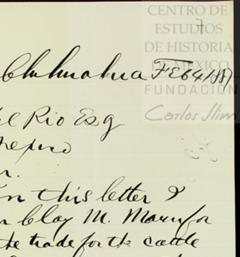 CENTRO DE
ESTUDIOS
DE HISTORIA
DE MEXICO
FUNDACIÓN
Carlos Slim
7
Chihuahua FE
el Rio Esq
In this letter I
Clay M.
the trade for the cattle